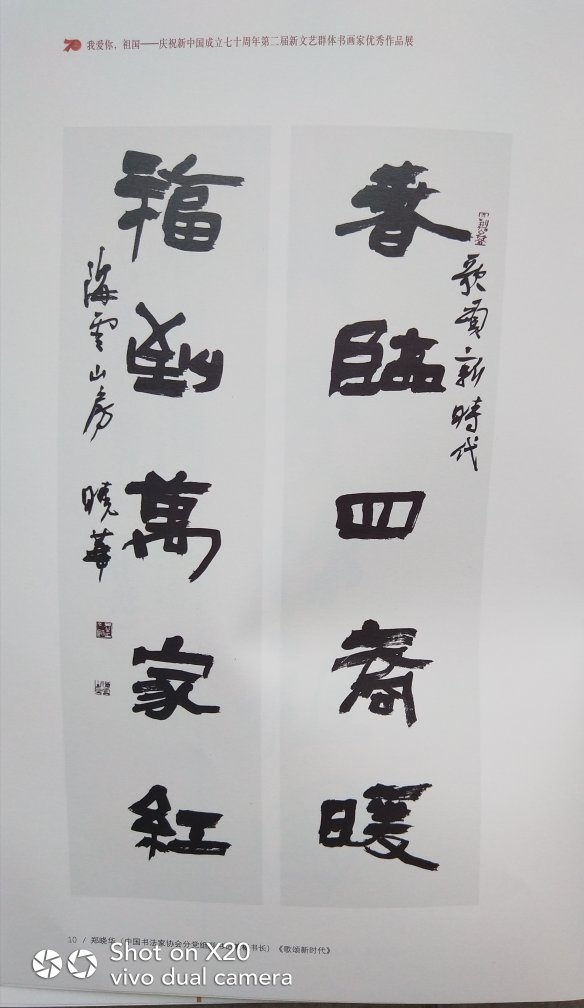 70 我爱你，祖国——庆祝新中国成立七十周年第二届新文艺群体书画家优秀作品展
歌頌新時代
春臨四裔暖
福到萬家紅
海雲山房 曉華
10 / 郑晓华（中国书法家协会分党组 书长）《歌颂新时代》
Shot on X20
vivo dual camera